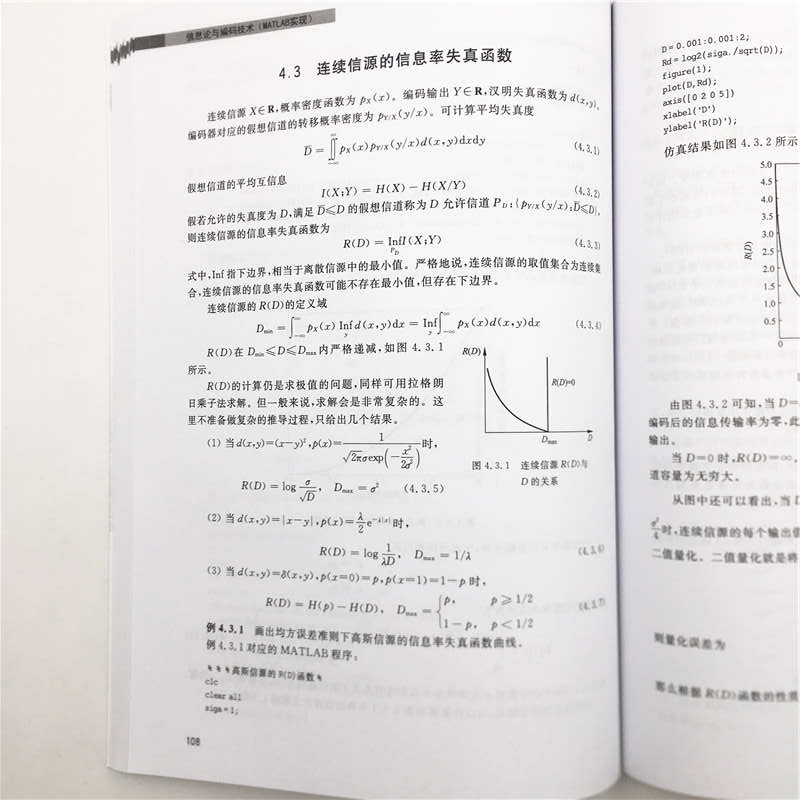 信息论与编码技术（MATLAB实现）
4.3 连续信源的信息率失真函数
连续信源 X∈R,概率密度函数为 pX(x)。编码输出 Y∈R,汉明失真函数为 d(x,y),
编码器对应的假想信道的转移概率密度为 pY/X(y/x)。可计算平均失真度
D̄ = ∬_{-∞}^{∞} pX(x)pY/X(y/x)d(x,y)dxdy (4.3.1)
假想信道的平均互信息
I(X;Y) = H(X) − H(X/Y) (4.3.2)
假若允许的失真度为 D,满足 D̄≤D 的假想信道称为 D 允许信道 PD:{pY/X(y/x);D̄≤D},
则连续信源的信息率失真函数为
R(D) = Inf_{PD} I(X;Y) (4.3.3)
式中,Inf 指下边界,相当于离散信源中的最小值。严格地说,连续信源的取值集合为连续集
合,连续信源的信息率失真函数可能不存在最小值,但存在下边界。
连续信源的 R(D)的定义域
Dmin = ∫_{-∞}^{∞} pX(x) Inf_y d(x,y)dx = Inf_y ∫_{-∞}^{∞} pX(x)d(x,y)dx (4.3.4)
R(D)在 Dmin≤D≤Dmax内严格递减,如图 4.3.1
所示。
R(D)的计算仍是求极值的问题,同样可用拉格朗
日乘子法求解。但一般来说,求解会是非常复杂的。这
里不准备做复杂的推导过程,只给出几个结果。
(1) 当 d(x,y)=(x−y)²,p(x)= 1/(√2πσexp(−x²/2σ²)) 时,
R(D) = log σ/√D, Dmax = σ² (4.3.5)
R(D)
R(D)=0
Dmax
D
图 4.3.1 连续信源 R(D)与
D 的关系
(2) 当 d(x,y)=|x−y|,p(x)= λ/2 e^{−λ|x|} 时,
R(D) = log 1/λD, Dmax = 1/λ (4.3.6)
(3) 当 d(x,y)=δ(x,y),p(x=0)=p,p(x=1)=1−p 时,
R(D) = H(p) − H(D), Dmax = { p, p ≥ 1/2 (4.3.7)
1−p, p < 1/2
例 4.3.1 画出均方误差准则下高斯信源的信息率失真函数曲线。
例 4.3.1对应的 MATLAB 程序:
%%%高斯信源的 R(D)函数%
clc
clear all
siga = 1;
108
D = 0.001:0.001:2;
Rd = log2(siga./sqrt(D));
figure(1);
plot(D,Rd);
axis([0 2 0 5])
xlabel('D')
ylabel('R(D)');
仿真结果如图 4.3.2 所示
5.0
4.5
4.0
3.5
3.0
2.5
2.0
1.5
1.0
0.5
0
R(D)
由图 4.3.2 可知,当 D=
编码后的信息传输率为零,此
输出。
当 D=0 时,R(D)=∞,
道容量为无穷大。
从图中还可以看出,当 D
σ²/4 时,连续信源的每个输出值
二值量化。二值量化就是将
则量化误差为
那么根据 R(D)函数的性质